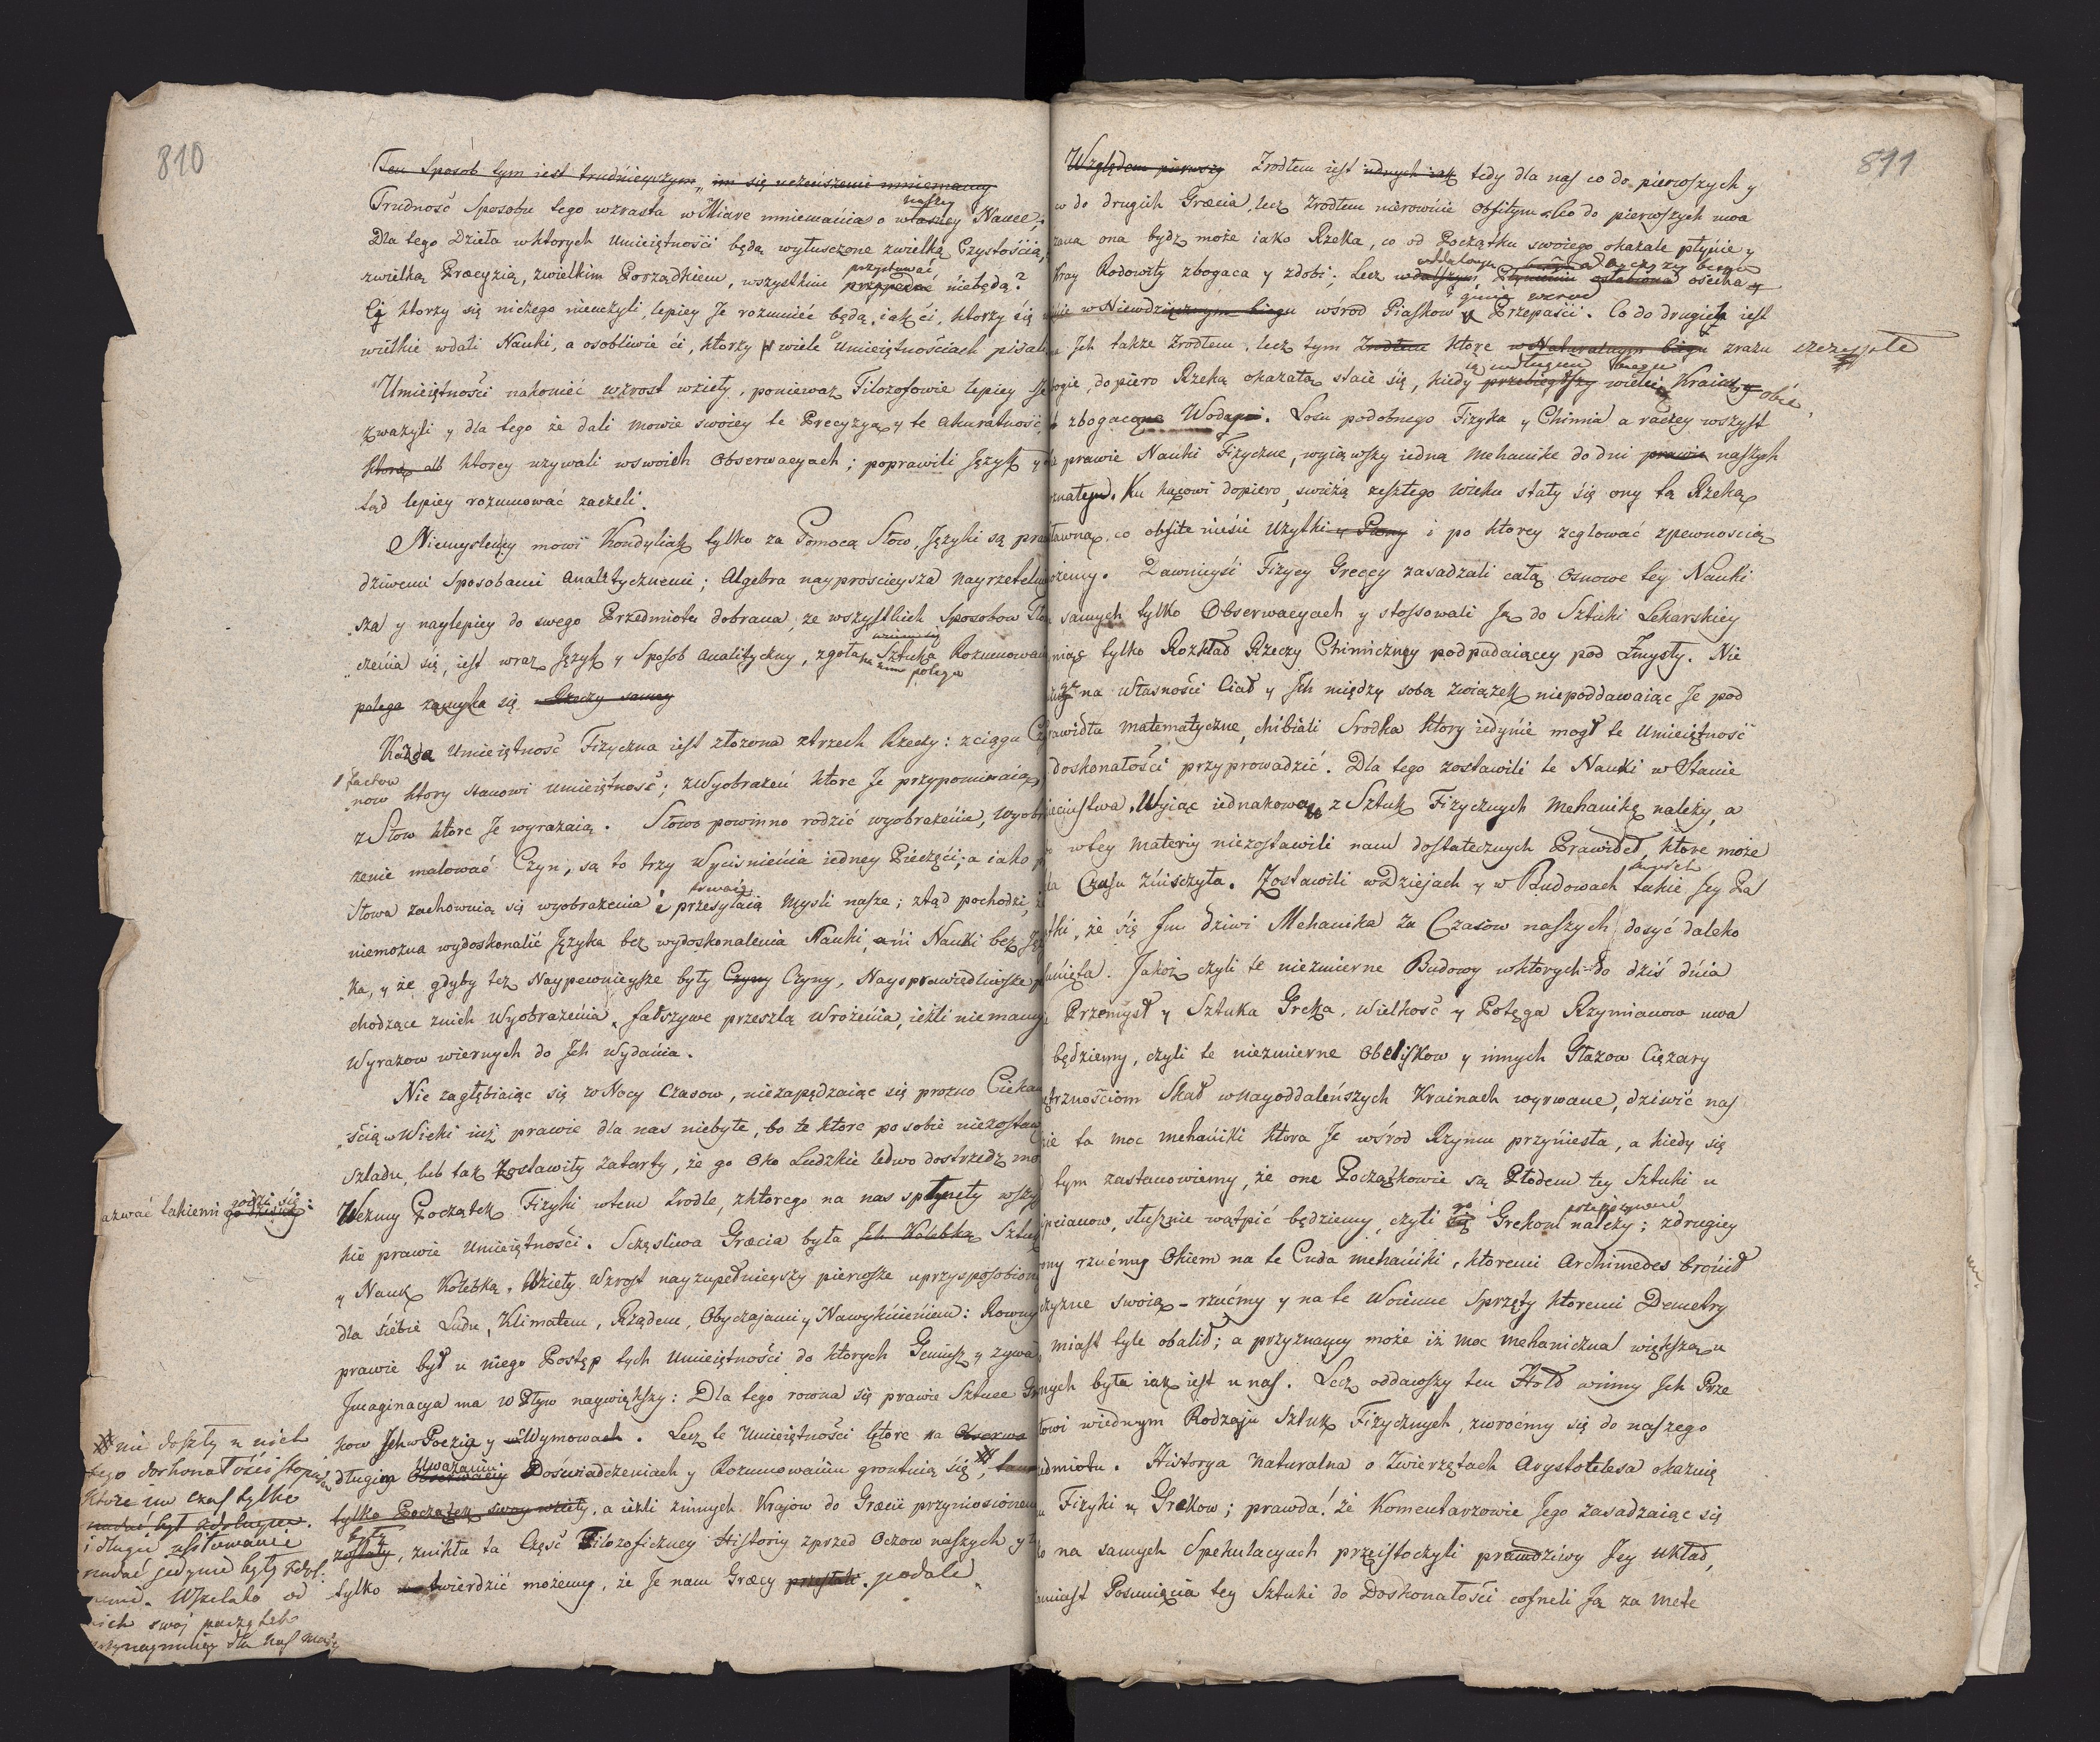 810
Ten Sposob tym iest trudnieyszym, im się uczeńszemi mniemamy
Trudność Sposobu tego wzrasta w Miarę mniemania o własney naszey Nauce;
Dla tego Dzieła w ktorych Umieiętności będą wyłuszczone z wielką Czystością,
z wielką Præcyzią, z wielkim Porządkiem, wszystkim przystawać niebędą?
Ci ktorzy się niczego nieuczyli, lepiey Je rozumieć będą, iak ci, ktorzy się
wielkie wdali Nauki, a osobliwie ci, ktorzy o wiele Umieiętnościach pisali
Umieiętności nakoniec wzrost wzieły, ponieważ Filozofowie lepiey
zważyli y dla tego że dali mowie swoiey te Precyzyą y te akuratność,
ktorey używali w swoich Obserwacyach; poprawili Język y
tąd lepiey rozumować zaczeli.
Niemyślemy mowi Kondyliak tylko za Pomocą Słow, Języki są praw
dziwemi Sposobami Analitycznemi; Algebra nayprościeysza nayrzetelniey
sza y naylepiey do swego Przedmiotu dobrana, ze wszystkich Sposobow Tłoma
czenia się, iest wraz Język y Sposob Analityczny, zgoła Sztuka Rozumowania
na nim polega
polega zamyka się Rzeczy samey
Każda Umieiętność Fizyczna iest złożona z trzech Rzeczy: z ciągu
now ktory stanowi Umieiętność; z Wyobrażeń ktore Je przypominaią,
z Słow ktore Je wyrażaią. Słowo powinno rodzić wyobrażenie, Wyobra
żenie malować Czyn, są to trzy Wyciśnienia iedney Pieczęci; a iako
słowa zachowuią się wyobrażenia i przesyłaią Mysli nasze; ztąd pochodzi,
niemożna wydoskonalić Języka bez wydoskonalenia Nauki, ani Nauki bez Ję
ka, y że gdyby też Naypewnieysze były Czyny Czyny, Naysprawiedliwsze
chodzące z nich Wyobrażenia, fałszywe przeszlą Wrożenia, ieżli nie mamy
Wyrazow wiernych do Ich Wydania.
Nie zagłębiaiąc się w Nocy Czasow, niezapędzaiąc się prozno Cieka
ścią w Wieki iuż prawie dla nas niebyłe, bo te ktore po sobie niezostaw
szladu, lub tak zostawiły zatarty, że go Oko Ludzkie ledwo dostrzedz mo
Wezmy Początek Fizyki w tem Zrodle, z ktorego na nas spłynęły wszy
azwać takiemi godzi się:
kie prawie Umieiętności. Szczęśliwa Græcia była Ich Kolebką Sztuk
y Nauk Kolebką. Wzieły Wzrost nayzupełnieyszy pierwsze uprzysposobion
dla siebie Ludu, Klimatem, Rządem, Obyczajami y Nawyknieniem: Rowny
prawie był u niego Postęp tych Umieiętności do ktorych Geniusz y żywa
Imaginacya ma Wpływ naywiększy: Dla tego rowna się prawie Sztuce
kow Ich w Poezią y Wymowach. Lecz te Umieiętności ktore na Obserwa
długim Uważaniu Doświadczeniach y Rozumowaniu gruntuią się,
tylko Początek swoy wzieły, a ieżli z innych Kraiow do Græcii przyniosione
były zostały, znikła ta Część Filozoficzney Historyi z przed Oczow naszych y
tylko twierdzić możemy, że Je nam Græcy przesłali podali
nie doszły u nich
tego doskonałości stopnia
ktore im czas tylko
nadać był zdolny
i długie usiłowanie
nadać jedynie były zdol
Wszelako od
nich swoj początek
przynaymniey dla nas maią
811
Względem pierwszy Zrodłem iest tedy dla nas co do pierwszych y
co do drugich Græcia, lecz Zrodłem nierownie obfitym. Co do pierwszych uwa
żana ona bydz może iako Rzeka, co od Początku swoiego okazale płynie y
Kray Rodowity zbogaca y zdobi; Lecz
w Niewdzięcznym biegu wśrod Piaskow y Przepaści. Co do drugich iest
Ich także Zrodłem, lecz tym Zrodłem ktore w Naturalnym biegu zrazu szczupłe
dopiero Rzeką okazałą staie się, kiedy przebiegłszy wiele Krain
zbogacone Wodami. Losu podobnego Fizyka y Chimia a raczey wszyst
prawie Nauki Fizyczne, wyiąwszy iedną Mehanikę do dni prawie naszych
Ku końcowi dopiero, zeszłego wieku stały się ony tą Rzeką
sławną, co obfite niesie Użytki y Plony i po ktorey żeglować z pewnoscią
możemy. Dawnieysi Fizycy Grecey zasadzali całą Osnowę tey Nauki
samych tylko Obserwacyach y stossowali Ją do Sztuki Lekarskiey
tylko Rozkład Rzeczy Chimiczney podpadaiącey pod Zmysły. Nie
na Własności Ciał y Ich między sobą związek niepoddawaiąc Je pod
prawidła Matematyczne, chibiali Srodka ktory iedynie mogł te Umieiętność
doskonałości przyprowadzić. Dla tego zostawili te Nauki w Stanie
Wyiąc iednakowoż z Sztuk Fizycznych Mehanikę należy, a
w tey Materiy niezostawili nam dostatecznych Prawideł, ktore może
Czasu zniszczyła. Zostawili w Dziejach y w Budowach takie Jey Pa
że się Im dziwi Mehanika za Czasow naszych dosyć daleko
Jakoż czyli te niezmierne Budowy w ktorych do dziś dnia
Przemysł y Sztuka Grecka, Wielkość y Potęga Rzymianow uwa
będziemy, czyli te niezmierne Obeliskow y innych Głazow Ciężary
Skał w nayoddaleńszych Krainach wyrwane, dziwić nas
ta moc mehaniki ktora Je wśrod Rzymu przyniesła, a kiedy się
tym zastanowiemy, że one Początkowie są Płodem tey Sztuki u
słusznie wątpić będziemy, czyli Grekom należy; z drugiey
rzućmy Okiem na te Cuda mehaniki, ktoremi Archimedes bronił
swoią - rzućmy y na te Woienne Sprzęty ktoremi Demetry
miast tyle obalił; a przyznamy może iż moc mehaniczna większa u
była iak iest u nas. Lecz oddawszy ten Hołd winny Ich Prze
w iednym Rodzaju Sztuk Fizycznych, zwroćmy się do naszego
Historya Naturalna o Zwierzętach Arystotelesa okazuię
Fizyki u Grekow; prawda! że Komentarzowie Jego zasadzaiąc się
na samych Spekulacyach przeistoczyli prawdziwy Jey Układ,
Posunięcia tey Sztuki do Doskonałości cofneli Ją za Mete